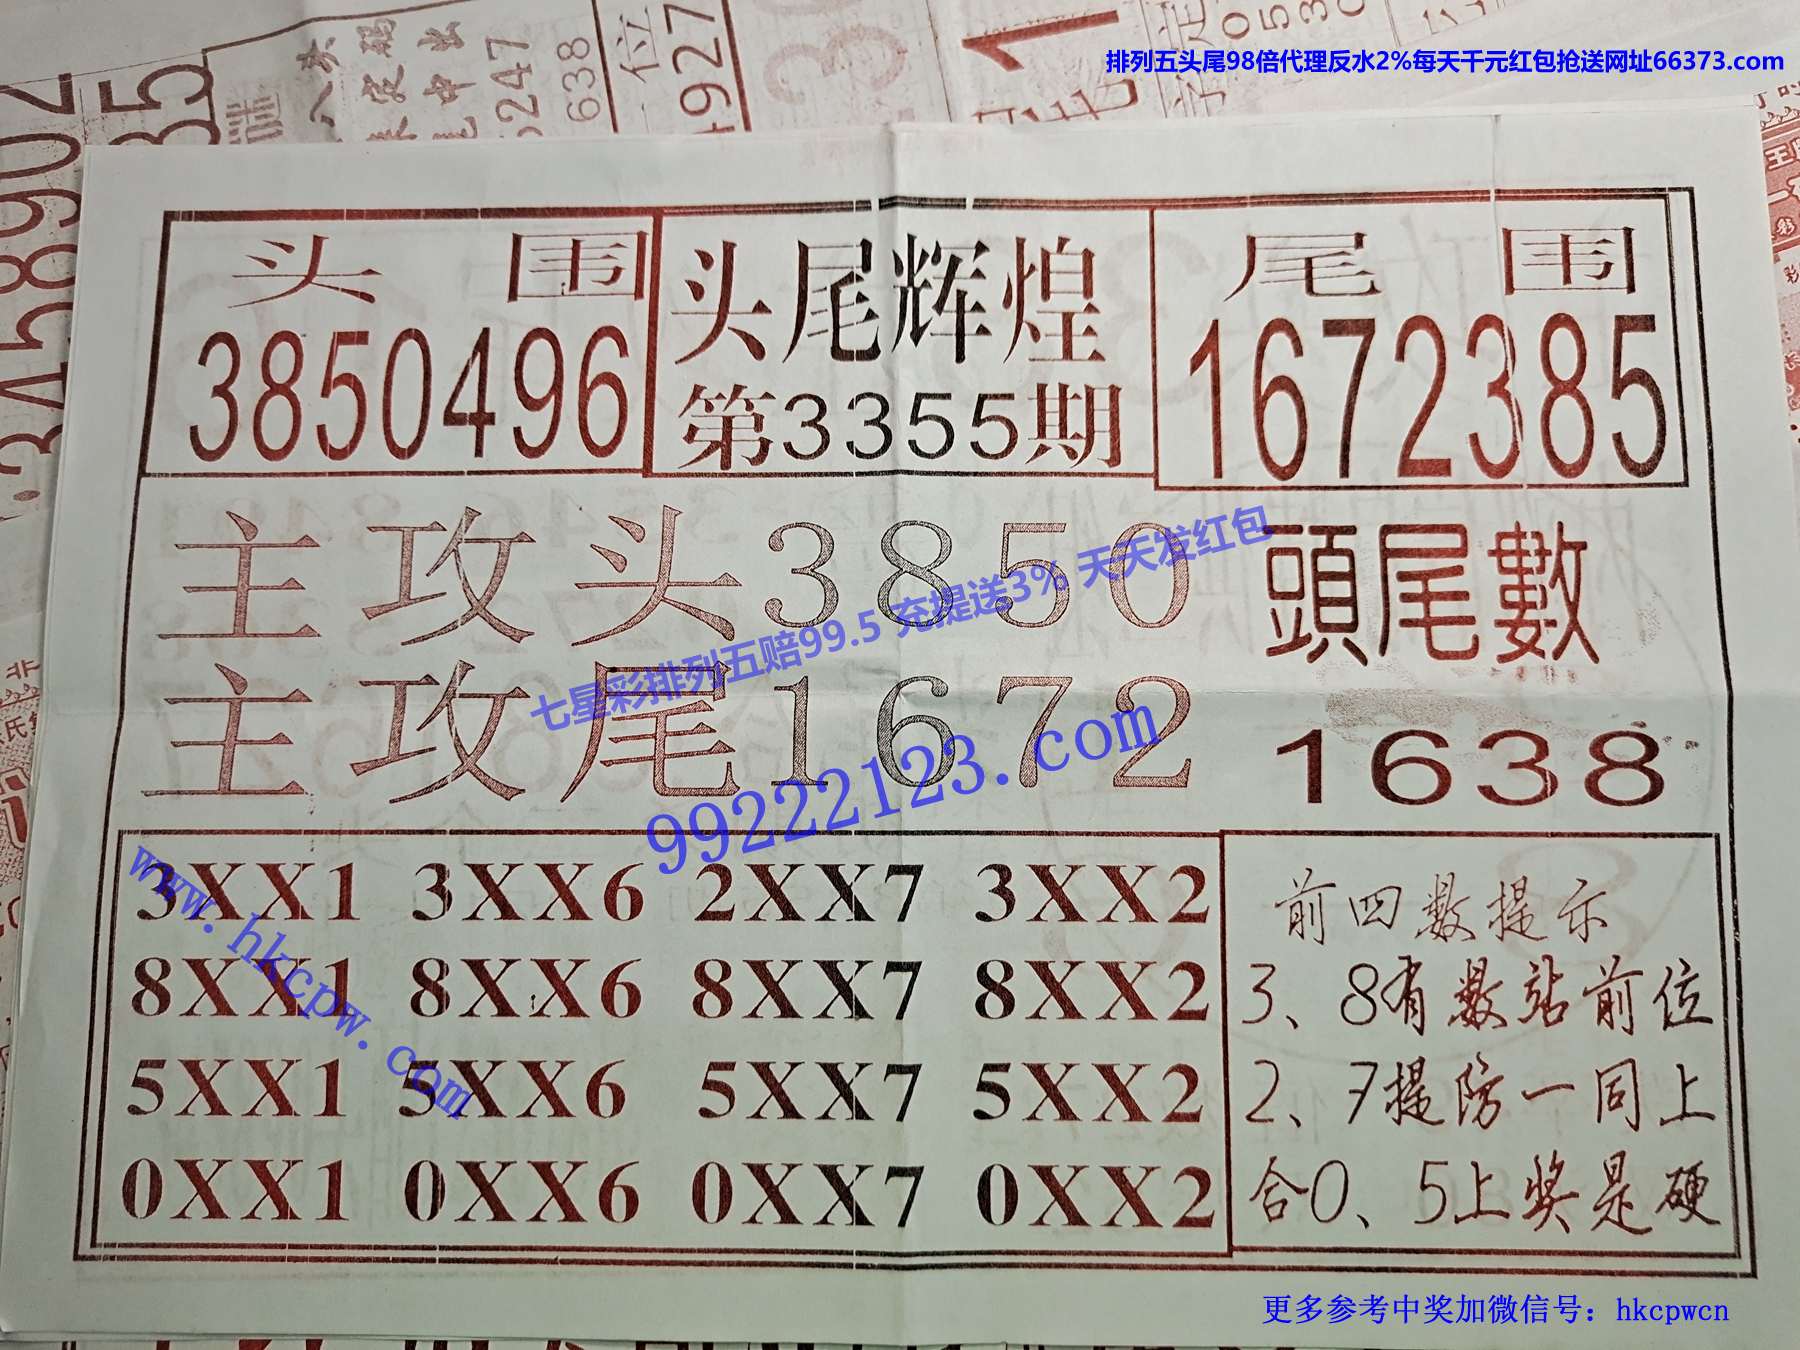 排列五头尾98倍代理反水2%每天千元红包抢送网址66373.com
头围
3850496
头尾辉煌
第3355期
尾围
1672385
主攻头3850
主攻尾1672
頭尾數
1638
七星彩排列五赔99.5 充提送3% 天天发红包
99222123.com
www.hkcpw.com
3XX1 3XX6 2XX7 3XX2
8XX1 8XX6 8XX7 8XX2
5XX1 5XX6 5XX7 5XX2
0XX1 0XX6 0XX7 0XX2
前四数提示
3、8有数站前位
2、7提防一同上
合0、5上奖是硬
更多参考中奖加微信号：hkcpwcn